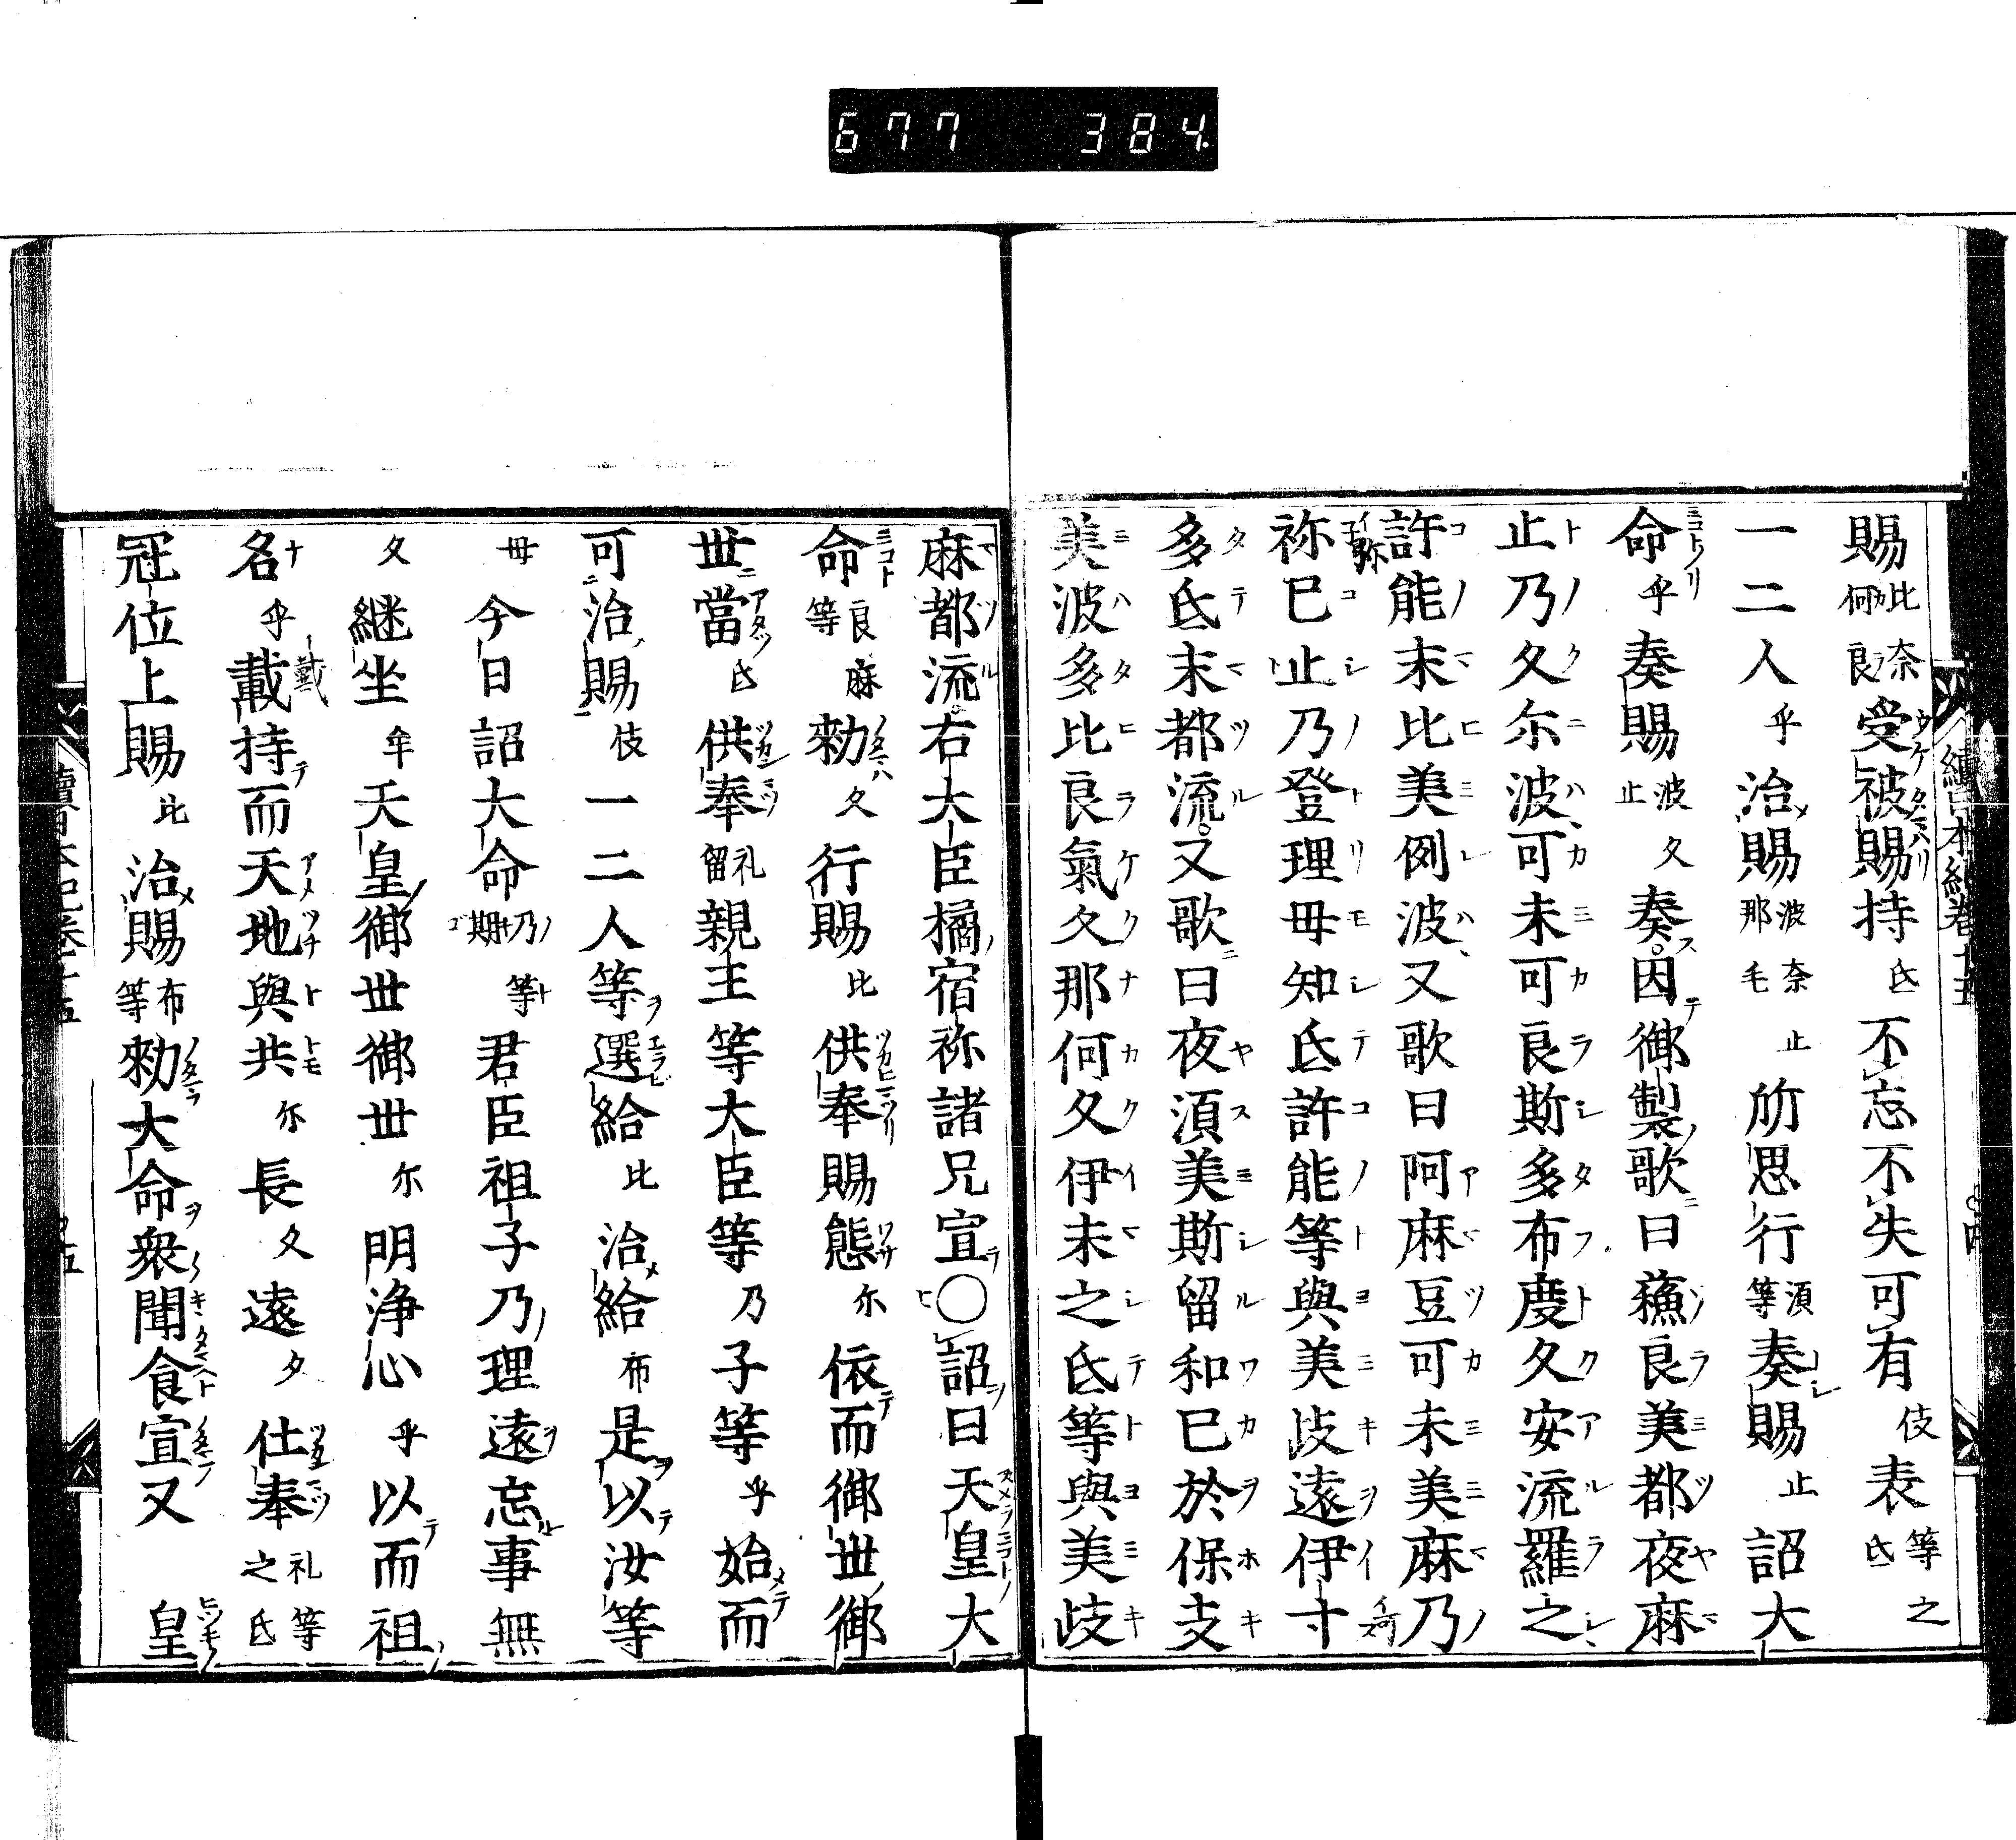 677 384
賜比奈何良受被賜持氐不忘不失可有伎表等之氐
一二人乎治賜波奈那毛止所思行須等奏賜止詔大
命乎奏賜波久止奏因御製歌曰蘓良美都夜麻
止乃久尓波可未可良斯多布度久安流羅之
許能末比美例波又歌曰阿麻豆可未美麻乃
祢已止乃登理毋知氐許能等與美岐遠伊寸
多氐末都流又歌曰夜湏美斯留和已於保支
美波多比良氣久那何久伊末之氐等與美岐
麻都流右大臣橘宿祢諸兄宣〇詔曰天皇大
命良麻等勅久行賜比供奉賜態尓依而御世御
世當氐供奉礼留親王等大臣等乃子等乎始而
可治賜伎一二人等選給比治給布是以汝等
毋今日詔大命乃期等君臣祖子乃理遠忘事無
久継坐牟天皇御世御世尓明浄心乎以而祖
名乎載持而天地與共尓長久遠久仕奉礼等之氐
冠位上賜比治賜布等勅大命衆聞食宣又 皇